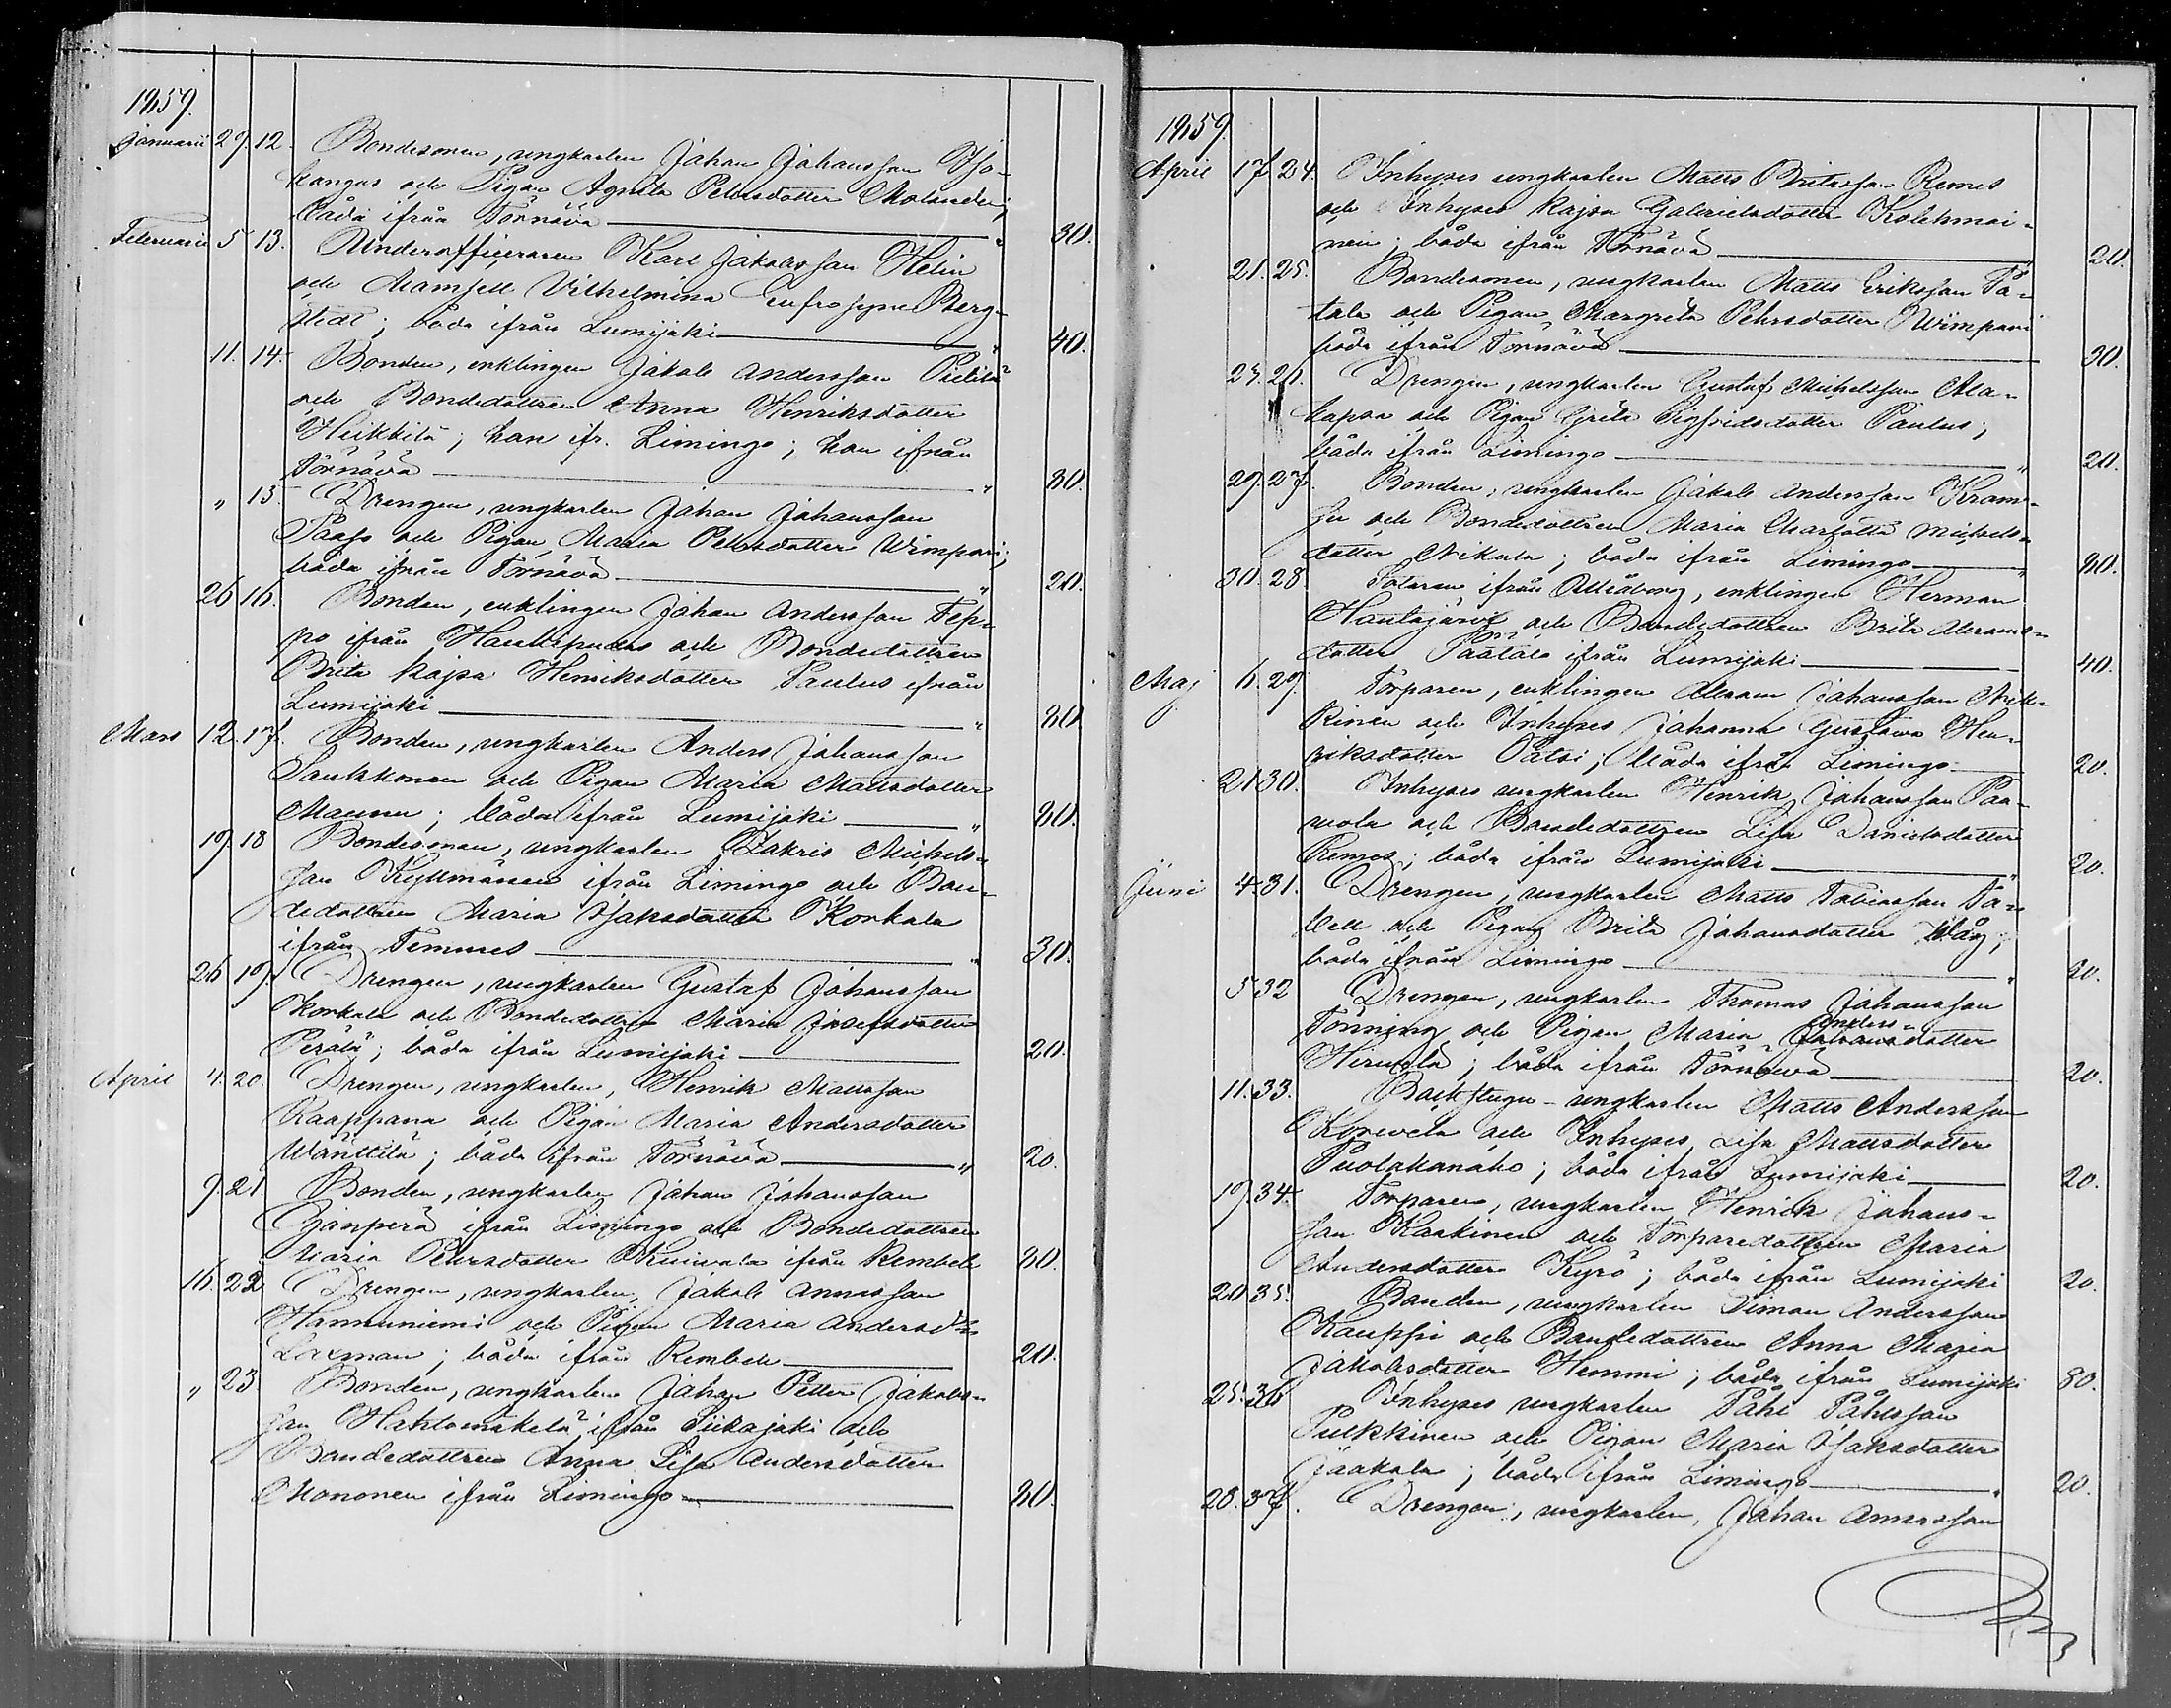 1859.
Januarii 29. 12. Bondesonen, ungkarlen Johan Johansson Iso-
kangas och Pigan Agneta Pehrsdotter Molander;
båda ifrån Tornävä " 30.
Februarii 5 13. Underofficeraren Karl Jakobsson Helin
och Mamsell Vilhelmina Eufrosyne Berg-
stedt; båda ifrån Lumijoki " 40.
11. 14. Bonden, enklingen Jakob Andersson Pietilä
och Bondedottren Anna Henriksdotter
Heikkilä; han ifr. Limingo; hon ifrån
Törnävä " 30.
" 15. Drengen, ungkarlen Johan Johansson
Paaso och Pigan Maria Pehrsdotter Wimpari;
båda ifrån Törnävä " 20.
26 16. Bonden, enklingen Johan Andersson Tep-
po ifrån Haukipudas och Bondedottren
Brita Kajsa Henriksdotter Paulus ifrån
Lumijoki " 30
Mars 12. 17. Bonden, ungkarlen Anders Johansson
Saukkonen och Pigan Maria Mattsdotter
Maunu; båda ifrån Lumijoki " 30.
19. 18 Bondesonen, ungkarlen Zakris Michels-
son Kyllmänen ifrån Limingo och Bon-
dedottren Maria Isaksdotter Korkala
ifrån Temmes " 30.
26 19. Drengen, ungkarlen Gustaf Johansson
Korkala och Bondedottren Maria Josefsdotter
Perälä; båda ifrån Lumijoki 20.
April 4. 20. Drengen, ungkarlen, Henrik Mattsson
Kaappana och Pigan Maria Andersdotter
Wänttilä; båda ifrån Törnävä " 20.
9. 21. Bonden, ungkarlen Johan Johansson
Jänperä ifrån Limingo och Bondedottren
Maria Pehrsdotter Kuivala ifrån Kembele 30.
16. 22 Drengen, ungkarlen, Jakob Annasson
Hannuniemi och Pigan Maria Andersd:r
Laxman; båda ifrån Kembele 20.
" 23. Bonden, ungkarlen Johan Petter Jakobs-
son Hahtomäkelä ifrån Siikajoki och
Bondedottren Anna Lisa Andersdotter
Mononen ifrån Limingo 30.
1859.
April 17. 24. Inhyses ungkarlen Matts Britasson Remes
och Inhyses Kajsa Gabrielsdotter Kolehmai-
nen; båda ifrån Törnävä " 20.
21. 25. Bondesonen, ungkarlen Matts Eriksson Ta-
tala och Pigan Margreta Pehrsdotter Wimpari
båda ifrån Törnävä 30.
Drengen, ungkarlen Gustaf Michelsson Ala-
kapsa och Pigan Greta Sigfridsdotter Paulus;
båda ifrån Limingo " 20.
29. 27. Bonden, ungkarlen Jakob Andersson Krans-
su och Bondedottren Maria Charlotta Michels-
dotter Nikula; båda ifrån Limingo " 30.
30. 28. Sotaren ifrån Uleåborg, enklingen Herman
Hautajärvi och Bondedottren Brita Abrams-
dotter Päätalo ifrån Lumijoki 40.
Maj 6. 29 Torparen, enklingen Abram Johansson Mik-
kinen och Inhyses Johanna Gustava Hen-
riksdotter Patsi; båda ifrån Limingo 20.
21 30. Inhyses ungkarlen Henrik Johansson Paa-
vola och Bondedottren Lisa Danielsdotter
Remes; båda ifrån Lumijoki " 20.
Juni 4. 31. Drengen, ungkarlen Matts Tobiasson Ta-
bell och Pigan Brita Johansdotter Wåg;
båda ifrån Limingo " 20.
5 32 Drengen, ungkarlen Thomas Johansson
Tönning och Pigan Maria Anders-
dotter
Hirvelä; båda ifrån Törnävä 20.
11. 33. Backstugu-ungkarlen Matts Andersson
Korvela och Inhyses Lisa Mattsdotter
Puolakanaho; båda ifrån Lumijoki 20.
19. 34. Torparen, ungkarlen Henrik Johans-
son Kaakinen och Torparedottren Maria
Andersdotter Kyrö; båda ifrån Lumijoki 20.
20 35. Bonden, ungkarlen Simon Andersson
Kauppi och Bondedottren Anna Maria
Jakobsdotter Hemmi; båda ifrån Lumijoki 30.
25. 36 Inhyses ungkarlen Påhl Påhlsson
Pulkkinen och Pigan Maria Isaksdotter
Jaakola; båda ifrån Limingo " 20.
28. 37. Drengen, ungkarlen, Johan Annasson